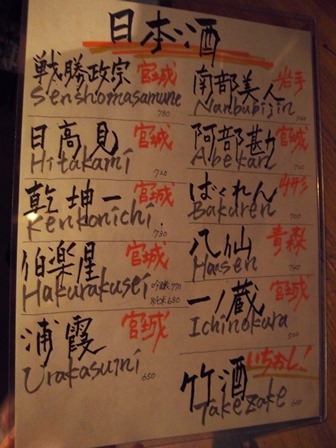 日本酒
戦勝政宗 宮城
Senshomasamune
780
日高見 宮城
Hitakami
720
乾坤一 宮城
Kenkonichi
730
伯楽星 宮城
Hakurakusei
吟醸 770
純米 680
浦霞 宮城
Urakasumi
650
南部美人 岩手
Nanbubijin
阿部勘 宮城
Abekan
700
ばくれん
Bakuren
700
八仙 青森
Hassen
一ノ蔵 宮城
Ichinokura
500
竹酒 いちおし!
Takezake